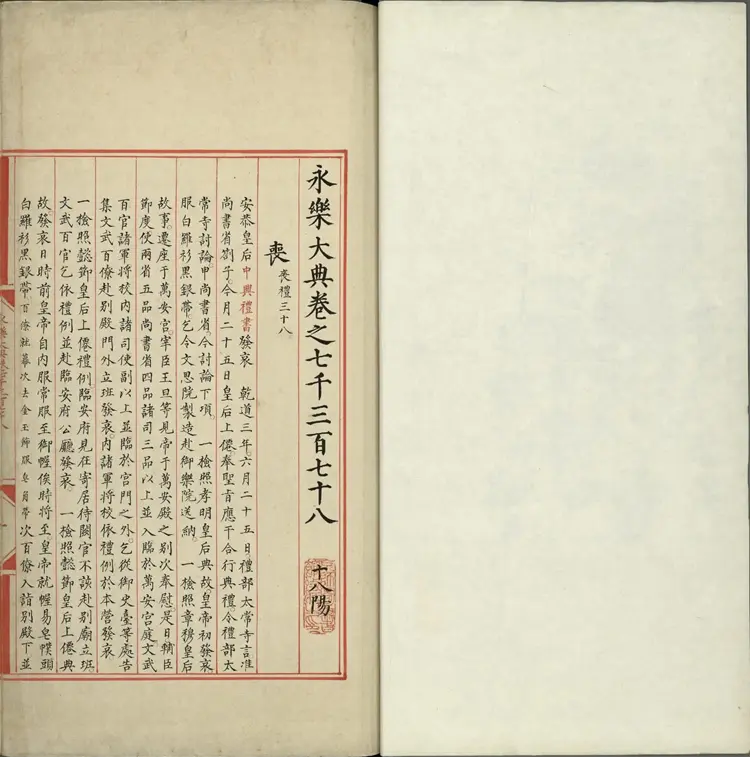 永樂大典卷之七千三百七十八
十八陽
喪
喪禮三十八
安恭皇后中興禮書發哀 乾道三年六月二十五日禮部太常寺言准
尚書省劄子今月二十五日皇后上僊奉聖旨應干合行典禮令禮部太
常寺討論申尚書省今討論下項 一檢照孝明皇后典故皇帝初發哀
服白羅衫黑銀帶乞令文思院製造赴御藥院送納 一檢照章穆皇后
故事遷座于萬安宮宰臣王旦等見帝于萬安殿之別次奉慰是日輔臣
節度使兩省五品尚書省四品諸司三品以上並入臨於萬安宮庭文武
百官諸軍將校內諸司使副以上並臨於宮門之外乞從御史臺等處告
集文武百僚赴別殿門外立班發哀內諸軍將校依禮例於本營發哀
一檢照懿節皇后上僊禮例臨安府見任寄居待闕官不該赴別廟立班
文武百官乞依禮例並赴臨安府公廳發哀 一檢照懿節皇后上僊典
故發哀日時前皇帝自內服常服至御幄俟時將至皇帝就幄易皂幞頭
白羅衫黑銀帶百僚社幕次去金玉飾服皂角帶次百僚入詣別殿下並